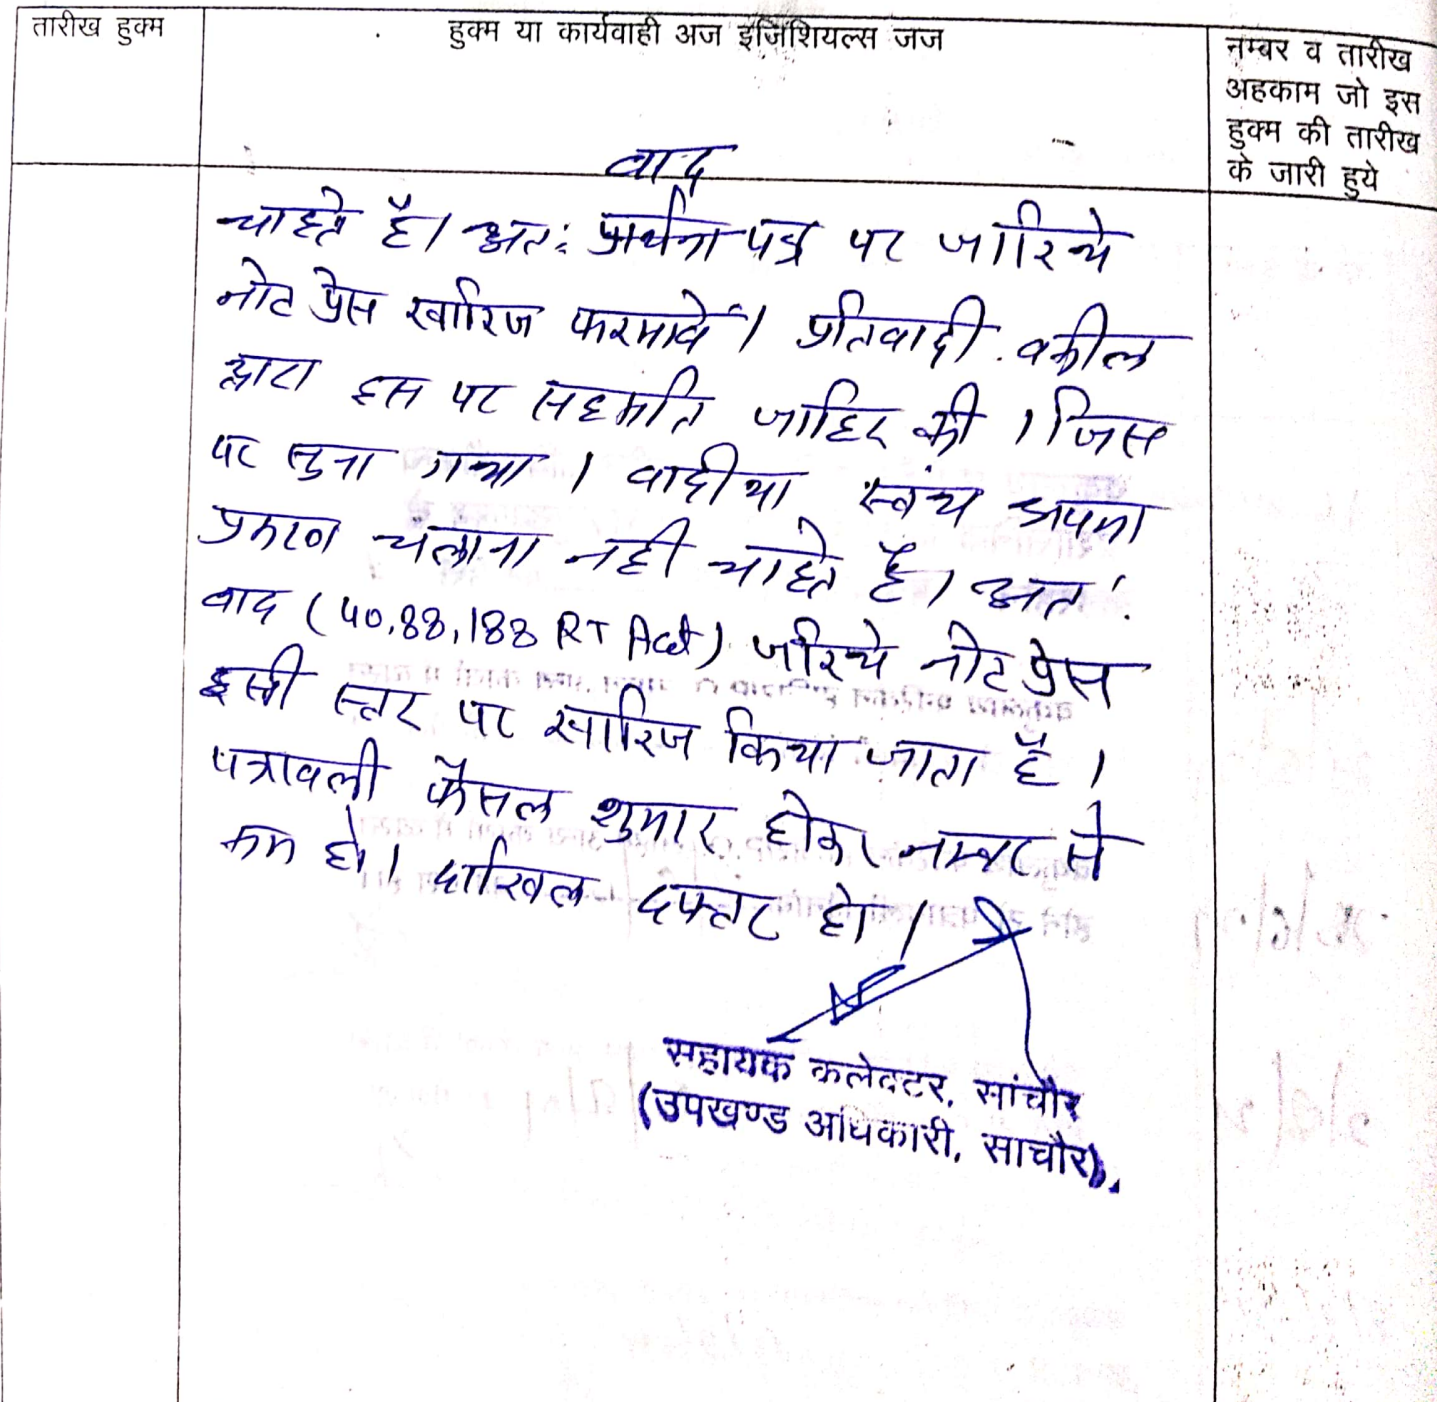 तारीख हुक्म
हुक्म या कार्यवाही अज इंजिशियल्स जज
नम्बर व तारीख
अहकाम जो इस
हुक्म की तारीख
के जारी हुये
वाद
चाहते है। अतः प्रार्थना पत्र पर जारिये
नोट प्रेस खारिज फरमावें। प्रतिवादी वकील
द्वारा इस पर सहमति जाहिर की। जिस
पर सुना गया। वादीया स्वंय अपना
प्रकरण चलाना नही चाहते है। अतः
वाद (40,88,188 RT Act) जरिये नोट प्रेस
इसी स्तर पर खारिज किया जाता है।
पत्रावली फैसल शुमार होकर नम्बर से
कम हो। दाखिल दफ्तर हो।
सहायक कलेक्टर, सांचौर
(उपखण्ड अधिकारी, साचौर)